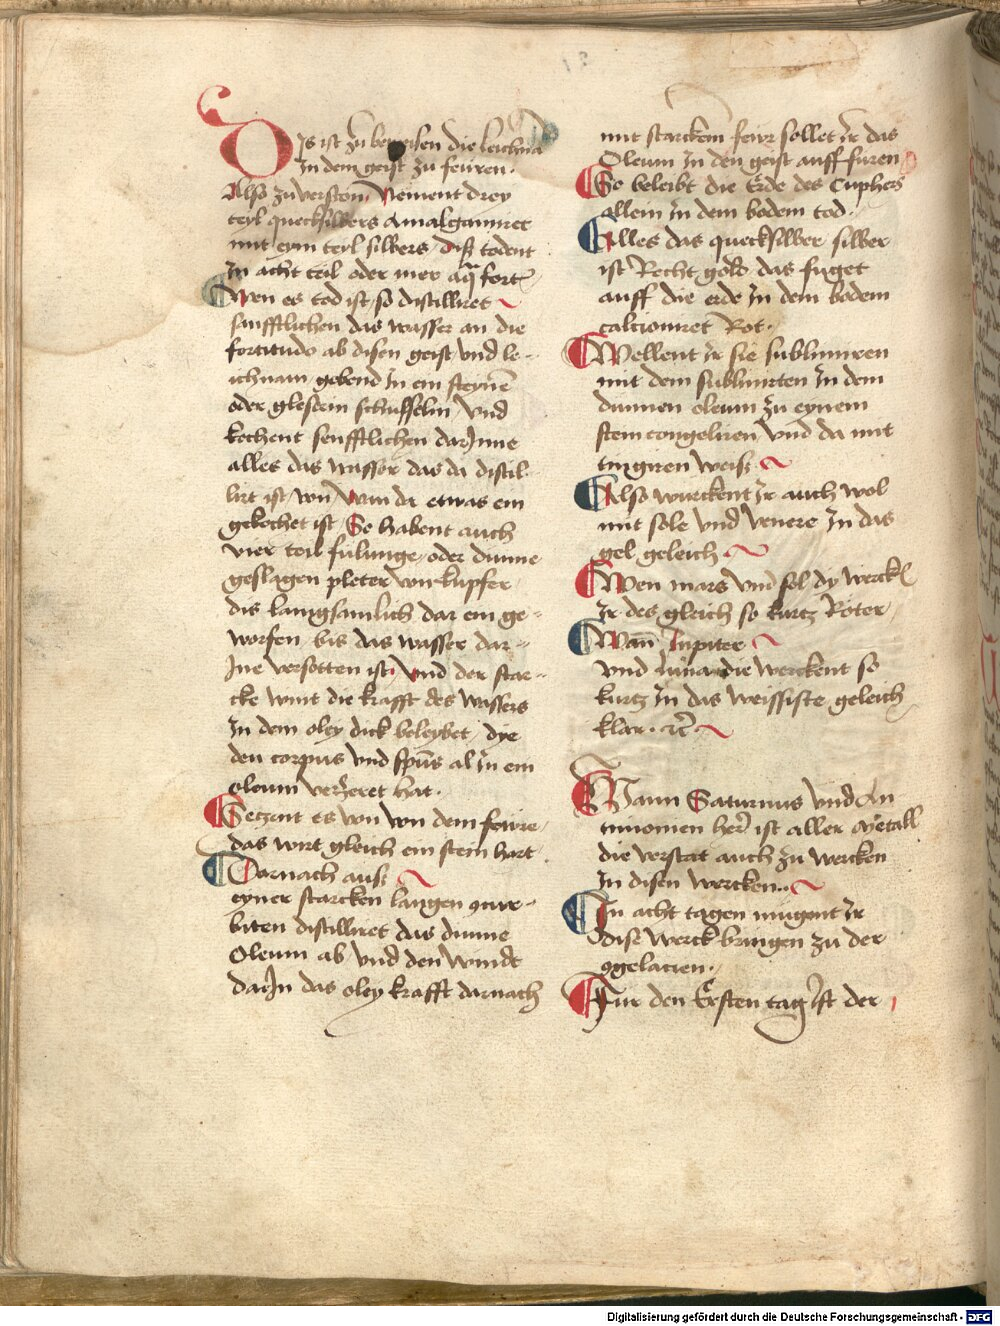 Dis ist zu beweisen die leichna
in dem geist zu feuren.
Also zuversten Nement drey
teyl quecksilbers Amalgamiret
mit eym teyl silbers, diß todent
in acht teil oder mer aq̃ fort
Wen es tod ist, so distilliret
sanfftlichen das wasser an die
fortitudo ab disen geist vnd le-
ichnam, gebend in ein steynē
oder glesein schusselin, Vnd
kochent senfftlichen dar Jnne
alles das wasser das da distil-
lirt ist, wan da etwas ein
gekochet ist, So habent auch
vier teil fulunge, oder dunne
geslagen pleter von kupfer,
dis langsamlich dar ein ge-
worfen, bis das wasser dar-
Jne versotten ist, Vnd der star-
cke wint die krafft des wassers
in dem oley dick beleybet, dye
den corpus vnd spūs al in ein
oleum verzeret hat.
Seczent es von dem feure,
das wirt gleich ein stein hart.
Darnach auss
eyner starcken langen 9cur-
biten distilliret das dunne
Oleum ab, vnd den windt
dar Jn das oley krafft darnach
mit starckem feur sollet ir das
Oleum in den geist auff furen
So beleibt die Erde des Cuphers
allein in dem bodem tod.
Alles das quecksilber, silber
ist Recht gold, das fuget
auff die erde in dem bodem
calcioniret Rot.
Wellent ir sie sublimiren
mit dem sublimten in dem
dunnen oleum zu eynem
stein congeliren, vnd da mit
tingiren weiß
Also wurckent ir auch wol
mit sole vnd venere in das
gel geleich
Wen mars vnd sol, dy werckt
ir des gleich so kurtz Roter,
Wan̄ Jupiter
vnd luna die werckent so
kurtz in das weissiste geleich
klar. ꝛc̄
Wann Saturnus vnd An
timonien her ist aller Metall
die verstat auch zu wercken
in disen wercken..
In acht tagen mugent ir
dise werck bringen zu der
9gelacien.
Fur den Ersten tag ist der
Digitalisierung gefördert durch die Deutsche Forschungsgemeinschaft - DFG